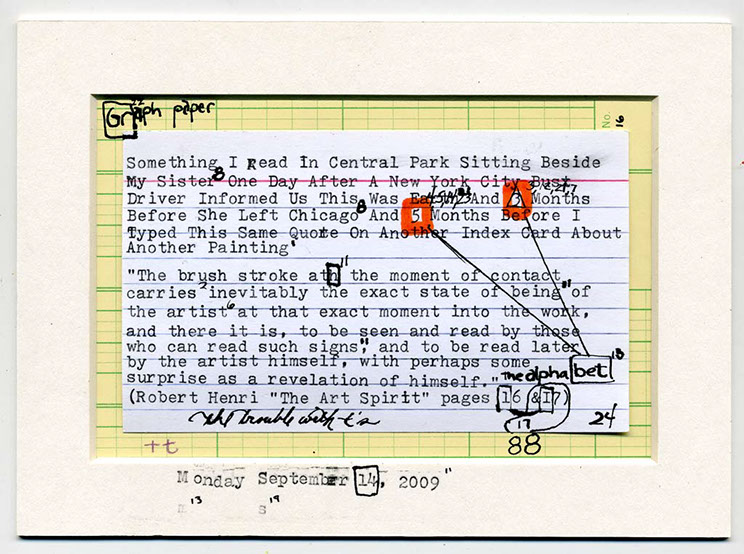 Graph paper
No. 16
Something I Read In Central Park Sitting Beside
My Sister 8 One Day After A New York City Bus
Driver Informed Us This Was And 3 Months
Before She Left Chicago 8 And 5 Months Before I
Typed This Same Quote On Another Index Card About
Another Painting
"The brush stroke at the moment of contact
carries inevitably the exact state of being of
the artist 6 at that exact moment into the work,
and there it is, to be seen and read by those
who can read such signs, and to be read later
by the artist himself, with perhaps some
surprise as a revelation of himself."
The alphabet 18
(Robert Henri "The Art Spirit" pages 16 & 17)
the trouble with t's
17
24
tt
88
Monday September 14, 2009"
m 13 s 19